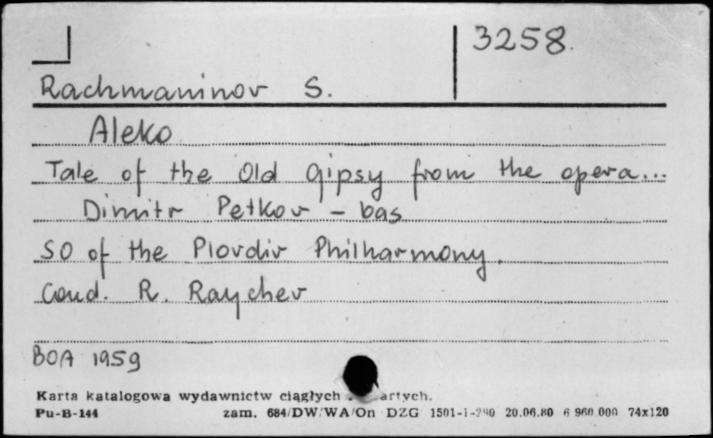 3258.
Rachmaninov S.
Aleko
Tale of the Old Gipsy from the opera...
Dimitr Petkov - bas
SO of the Plovdiv Philharmony.
Cond. R. Raychev
BOA 1959
Karta katalogowa wydawnictw ciągłych
Pu-B-144 zam. 684/DW/WA/On DZG 20.06.80 6 960 000 74x120